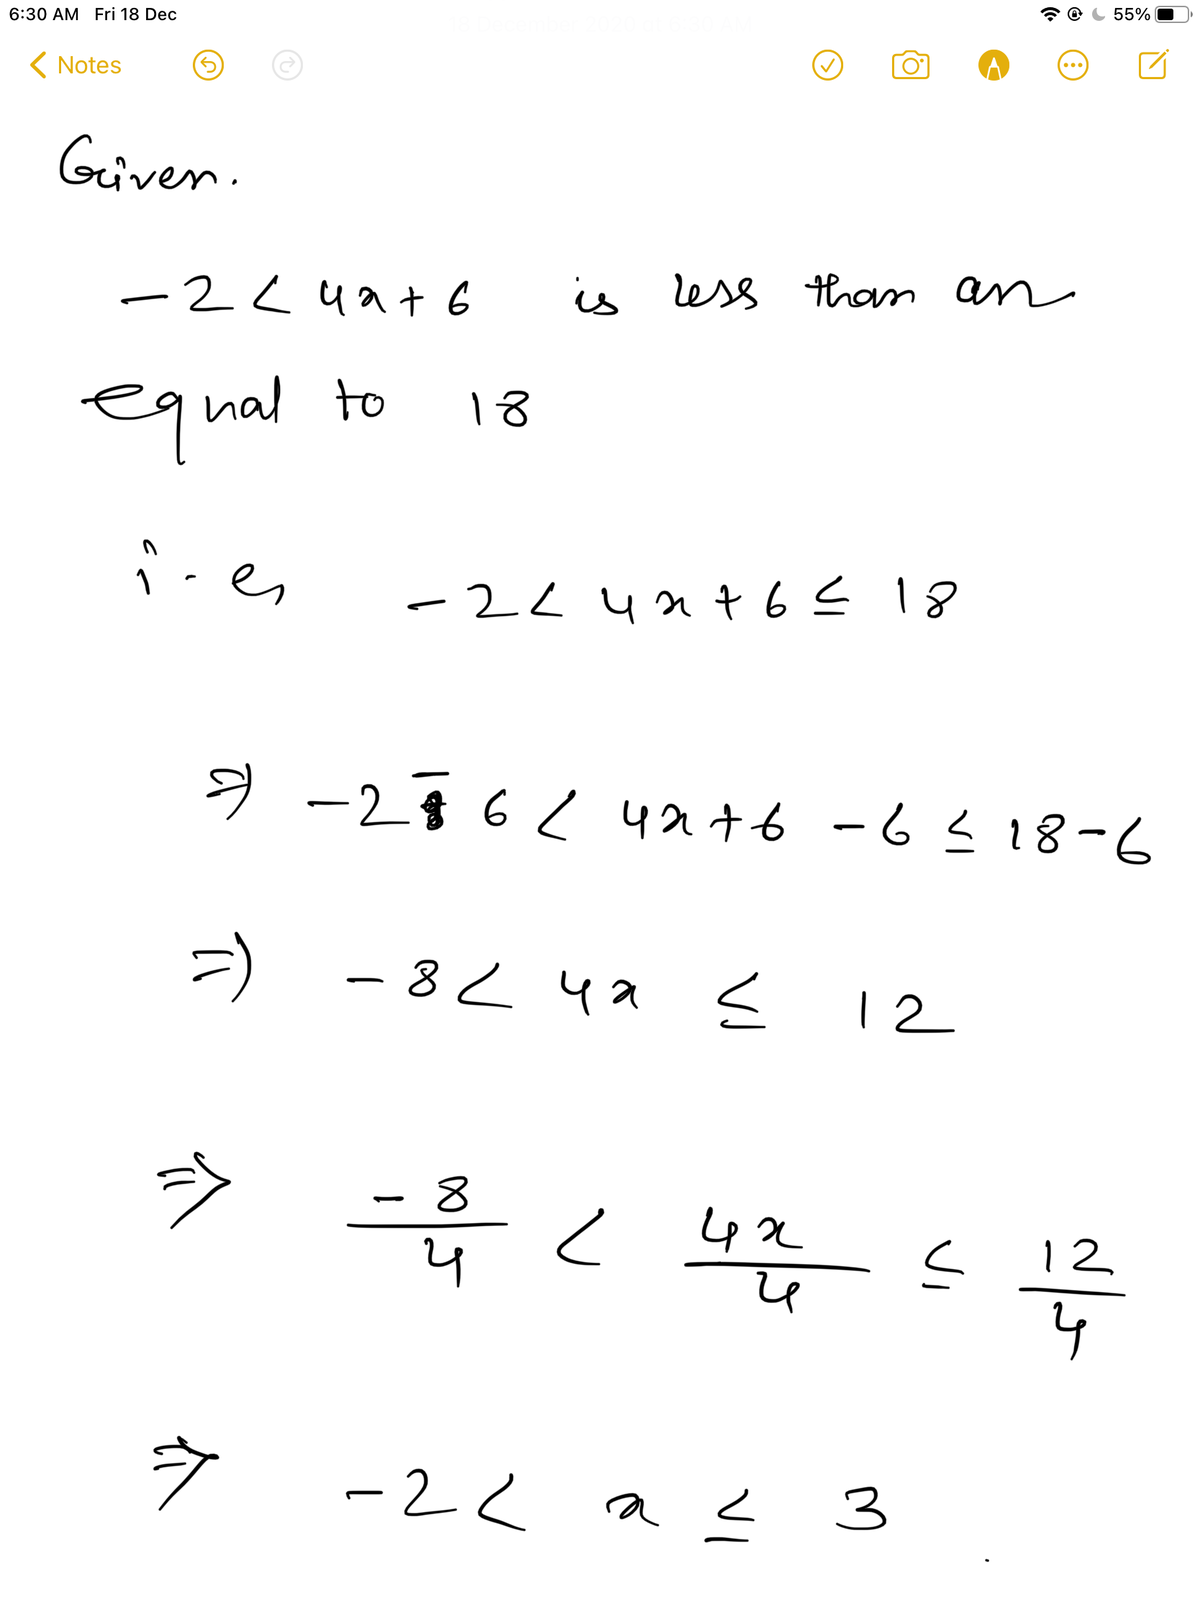 6:30 AM Fri 18 Dec 55%
Notes
Given.
-2 < 4x + 6 is less than an
equal to 18
i.e, -2 < 4x + 6 ≤ 18
⇒ -2 - 6 < 4x + 6 - 6 ≤ 18 - 6
⇒ -8 < 4x ≤ 12
⇒ -8/4 < 4x/4 ≤ 12/4
⇒ -2 < x ≤ 3